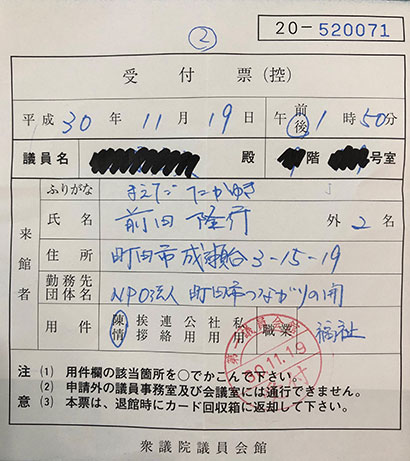 ②
20-520071
受付票(控)
平成30年11月19日 午前後1時50分
議員名 殿 階 号室
来館者
ふりがな まえだ たかゆき
氏名 前田 隆行 外2名
住所 町田市成瀬台3-15-19
勤務先団体名 NPO法人 町田市つながりの開
用件 陳情 挨拶 連絡 公用 社用 私用 職業 福祉
第一議員会館
30.11.19
受付
注意 (1) 用件欄の該当箇所を○でかこんで下さい。
(2) 申請外の議員事務室及び会議室には通行できません。
(3) 本票は、退館時にカード回収箱に返却して下さい。
衆議院議員会館